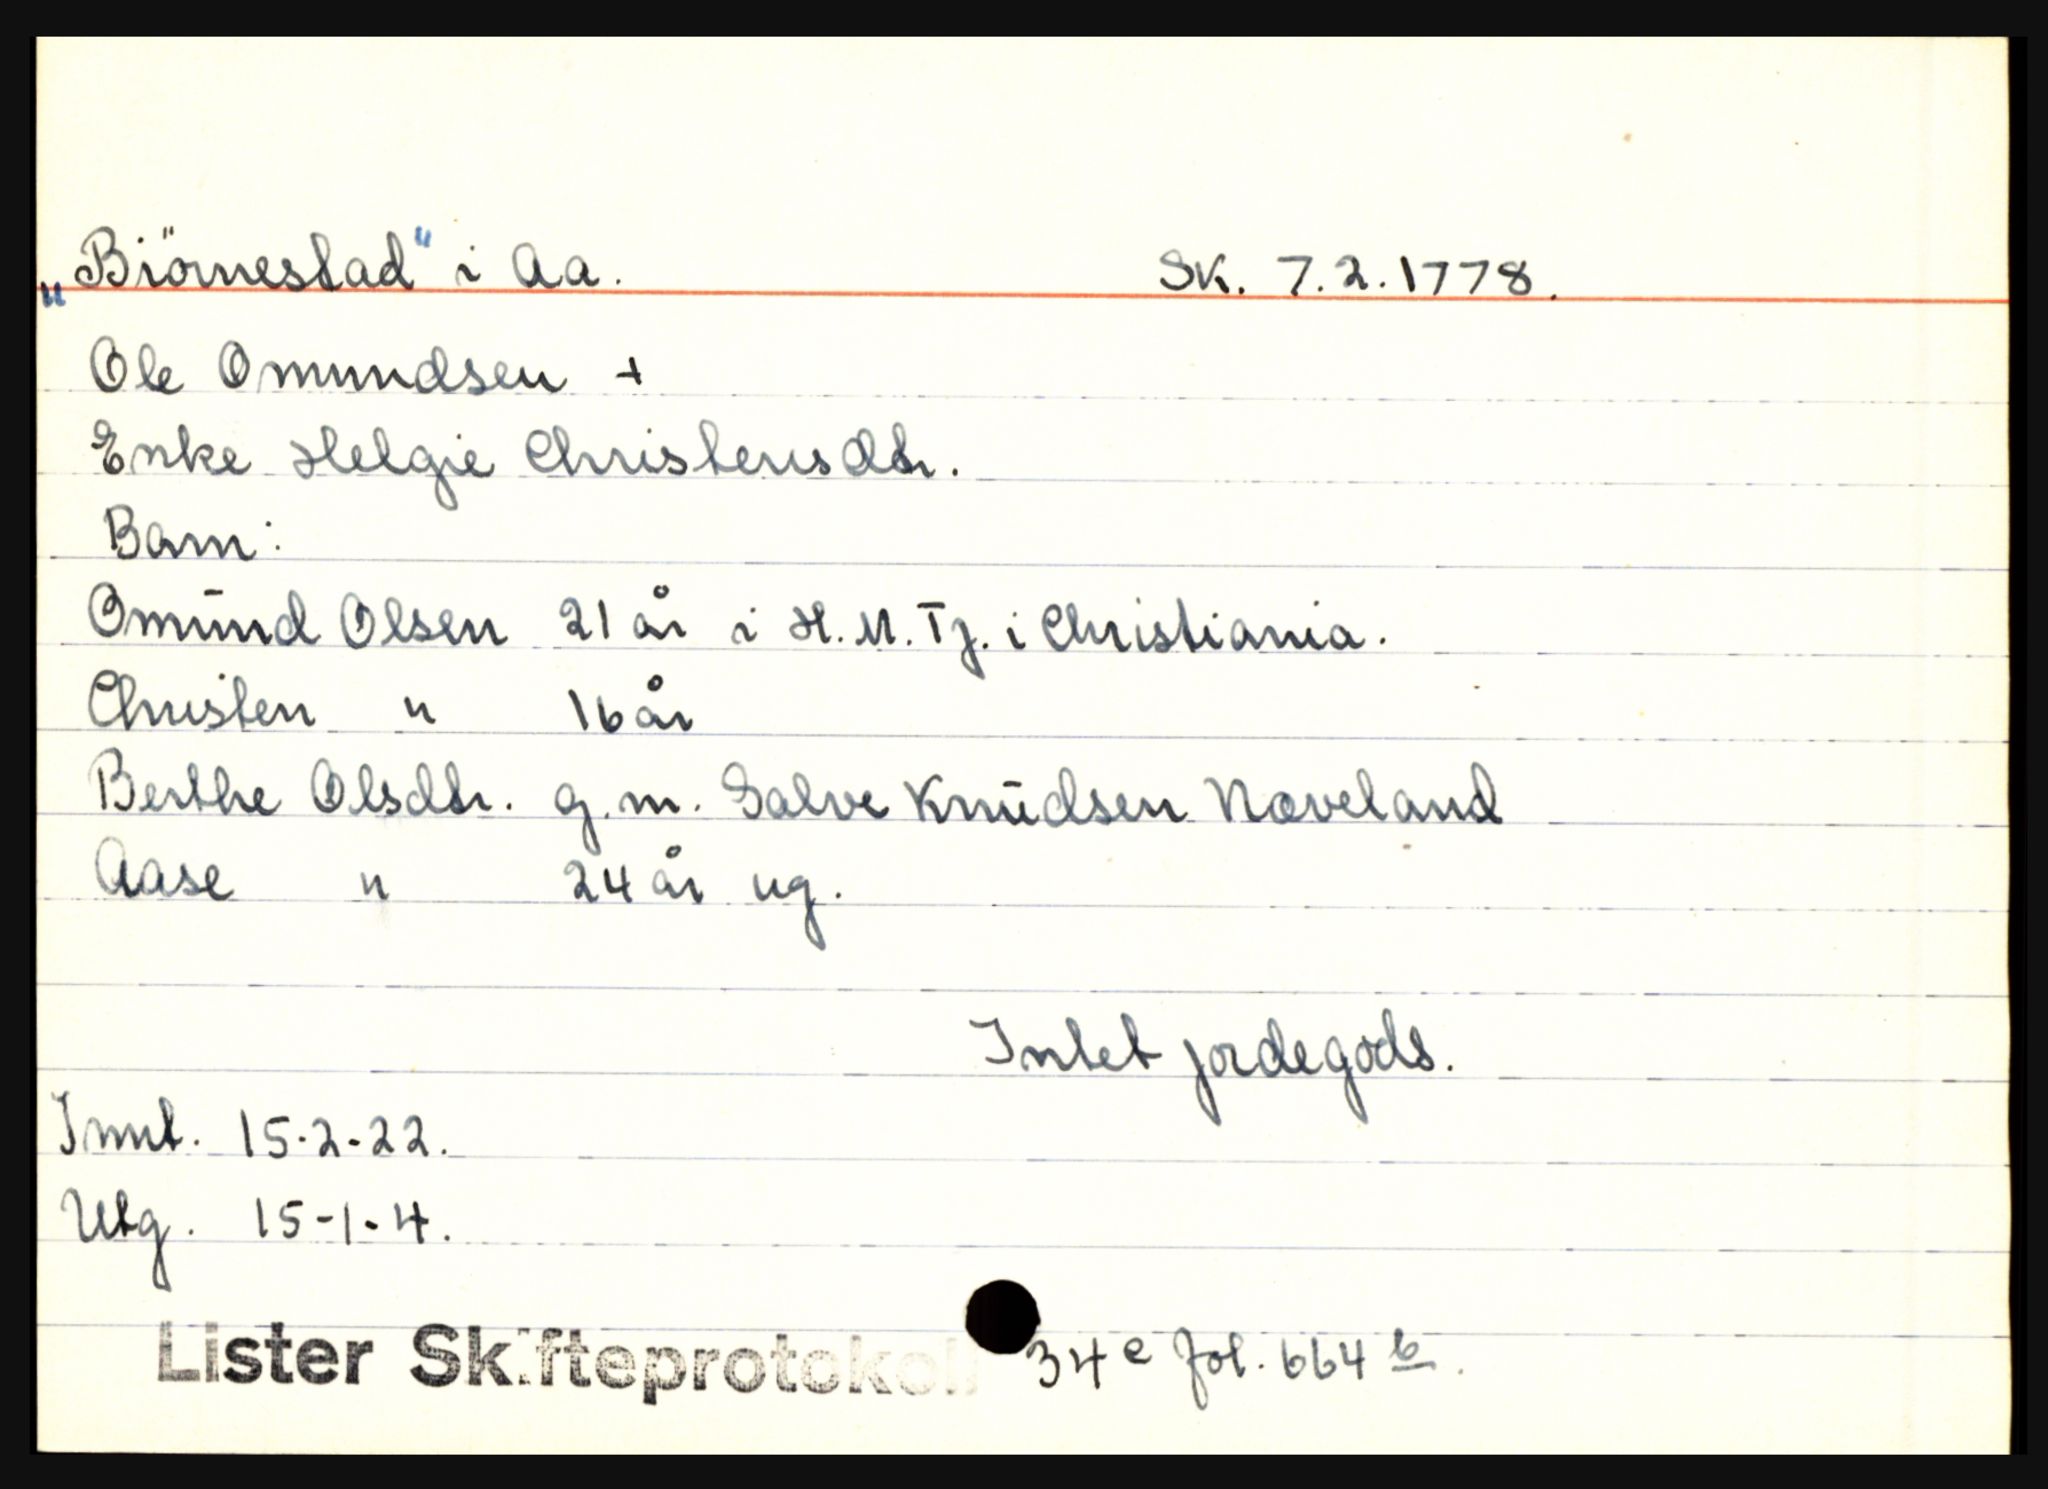 „Biörnestad" i Aa. SK. 7.2.1778.
Ole Omundsen +
Enke Helgie Christensdtr.
Barn:
Omūnd Olsen 21 år i H.M.Tj. i Christiania.
Christen " 16 år
Berthe Olsdtr. g.m. Salve Knūdsen Noveland
Aase " 24 år ug.
Intet jordegods.
Innt. 15-2-22.
Utg. 15-1-4.
Lister Skifteprotokoll 34 e fol. 664 b.